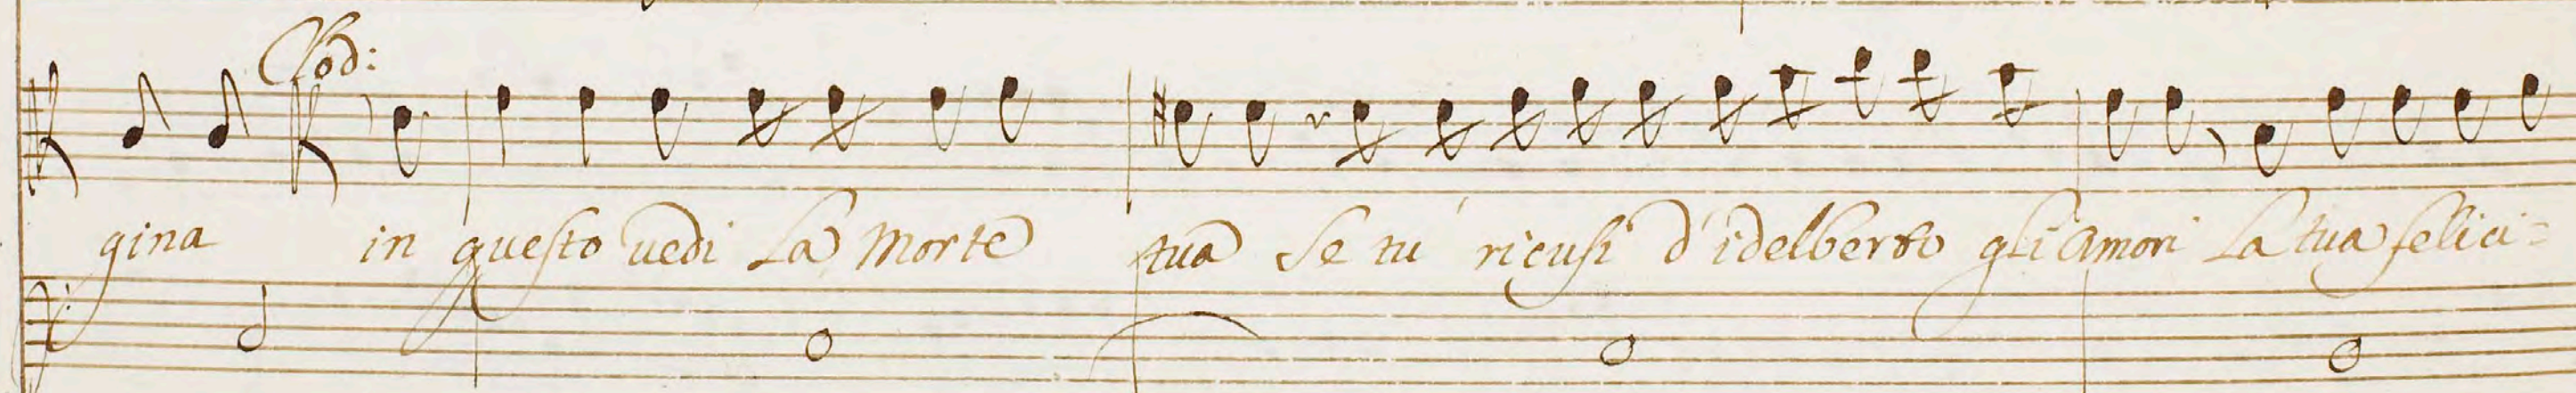 Clod:
gina in questo vedi La Morte tua Se tu ricusi d'idelberto gli Amori La tua felici=